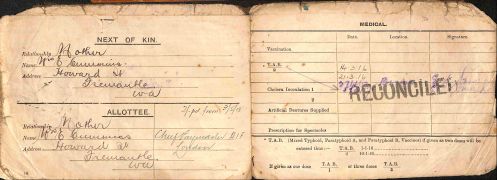 NEXT OF KIN.
Relationship Mother
Name Mrs E Cummins
Address Howard St
Fremantle
WA
ALLOTTEE.
Relationship Mother
Name Mrs E Cummins
Address Howard St
Fremantle
WA
Chief Paymaster
London
MEDICAL.
Date. Location. Signature.
Vaccination
*T.A.B.
14.3.16
2
21.3.16
Cholera Inoculation 1
2
RECONCILED
Artificial Dentures Supplied
Prescription for Spectacles
* T.A.B. (Mixed Typhoid, Paratyphoid A, and Paratyphoid B, Vaccines) if given as two doses will be
entered thus:— T.A.B. 1-1-16
2 10-1-16
If given as one dose T.A.B. 1 or three doses T.A.B. 3